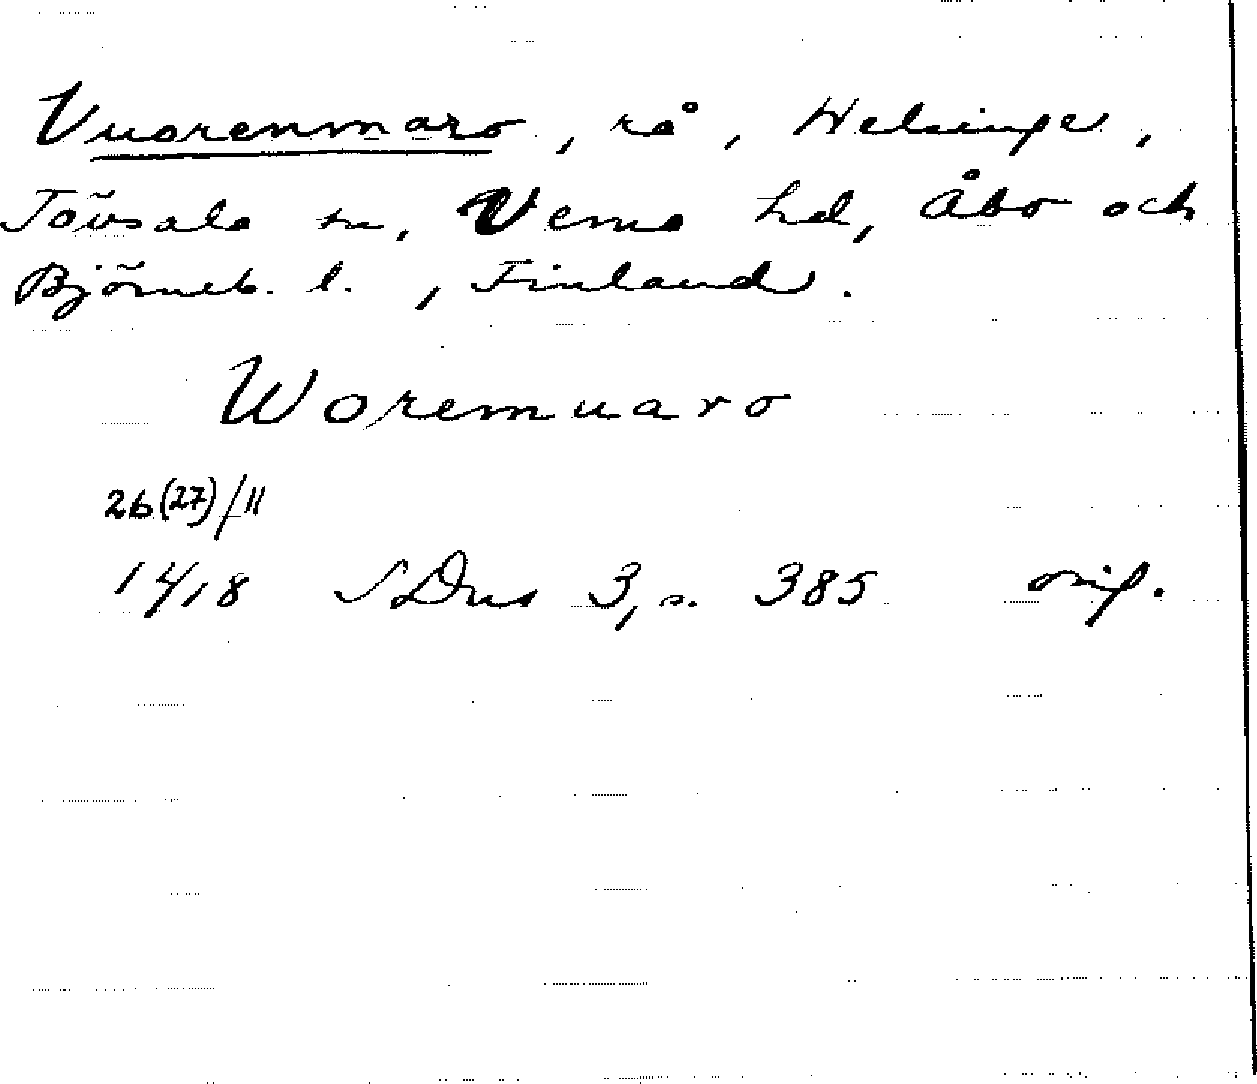 Vuorenmaro, rå, Helsinge,
Tövsala sn, Vemo hd, Åbo och
Björneb. l., Finland.
Woremuaro
26(27)/11
14/18 SDns 3, s. 385 orig.